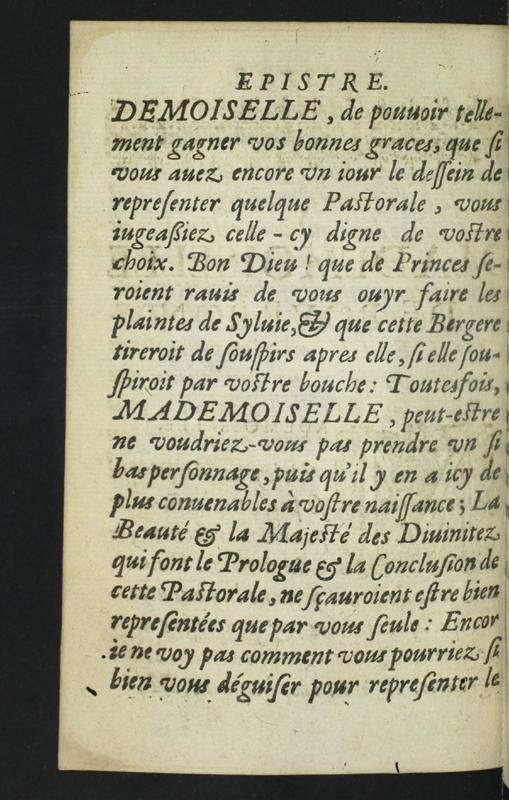 EPISTRE.
DEMOISELLE, de pouuoir telle-
ment gagner vos bonnes graces, que ſi
vous auez encore vn iour le deſſein de
repreſenter quelque Paſtorale, vous
iugeaßiez celle-cy digne de voſtre
choix. Bon Dieu! que de Princes ſe-
roient rauis de vous ouyr faire les
plaintes de Syluie, & que cette Bergere
tireroit de ſouſpirs apres elle, ſi elle ſou-
ſpiroit par voſtre bouche: Toutesfois,
MADEMOISELLE, peut-eſtre
ne voudriez-vous pas prendre vn ſi
bas perſonnage, puis qu'il y en a icy de
plus conuenables à voſtre naiſſance; La
Beauté & la Majeſté des Diuinitez
qui font le Prologue & la Concluſion de
cette Paſtorale, ne ſçauroient eſtre bien
repreſentées que par vous ſeule: Encor
ie ne voy pas comment vous pourriez ſi
bien vous déguiſer pour repreſenter le